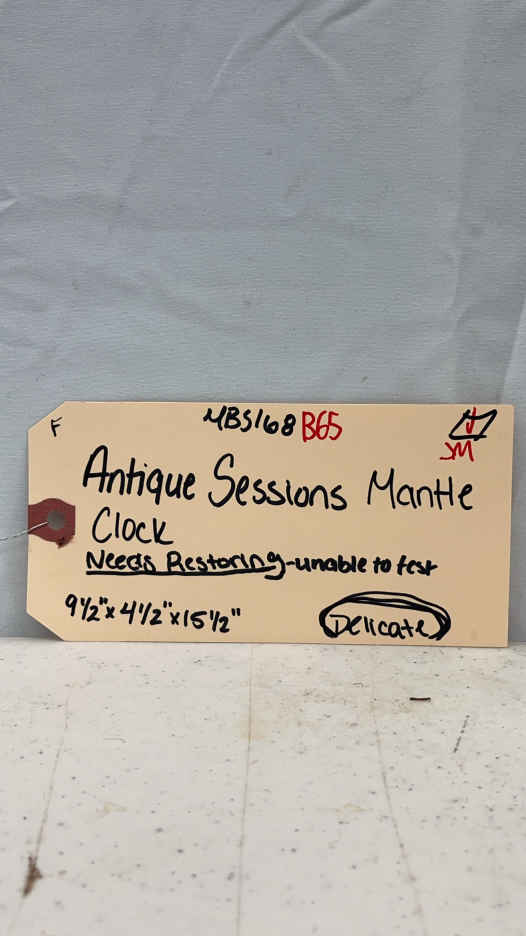 F
MBS168 B65
JM
Antique Sessions Mantle
Clock
Needs Restoring-unable to test
9 1/2" x 4 1/2" x 15 1/2"
Delicate